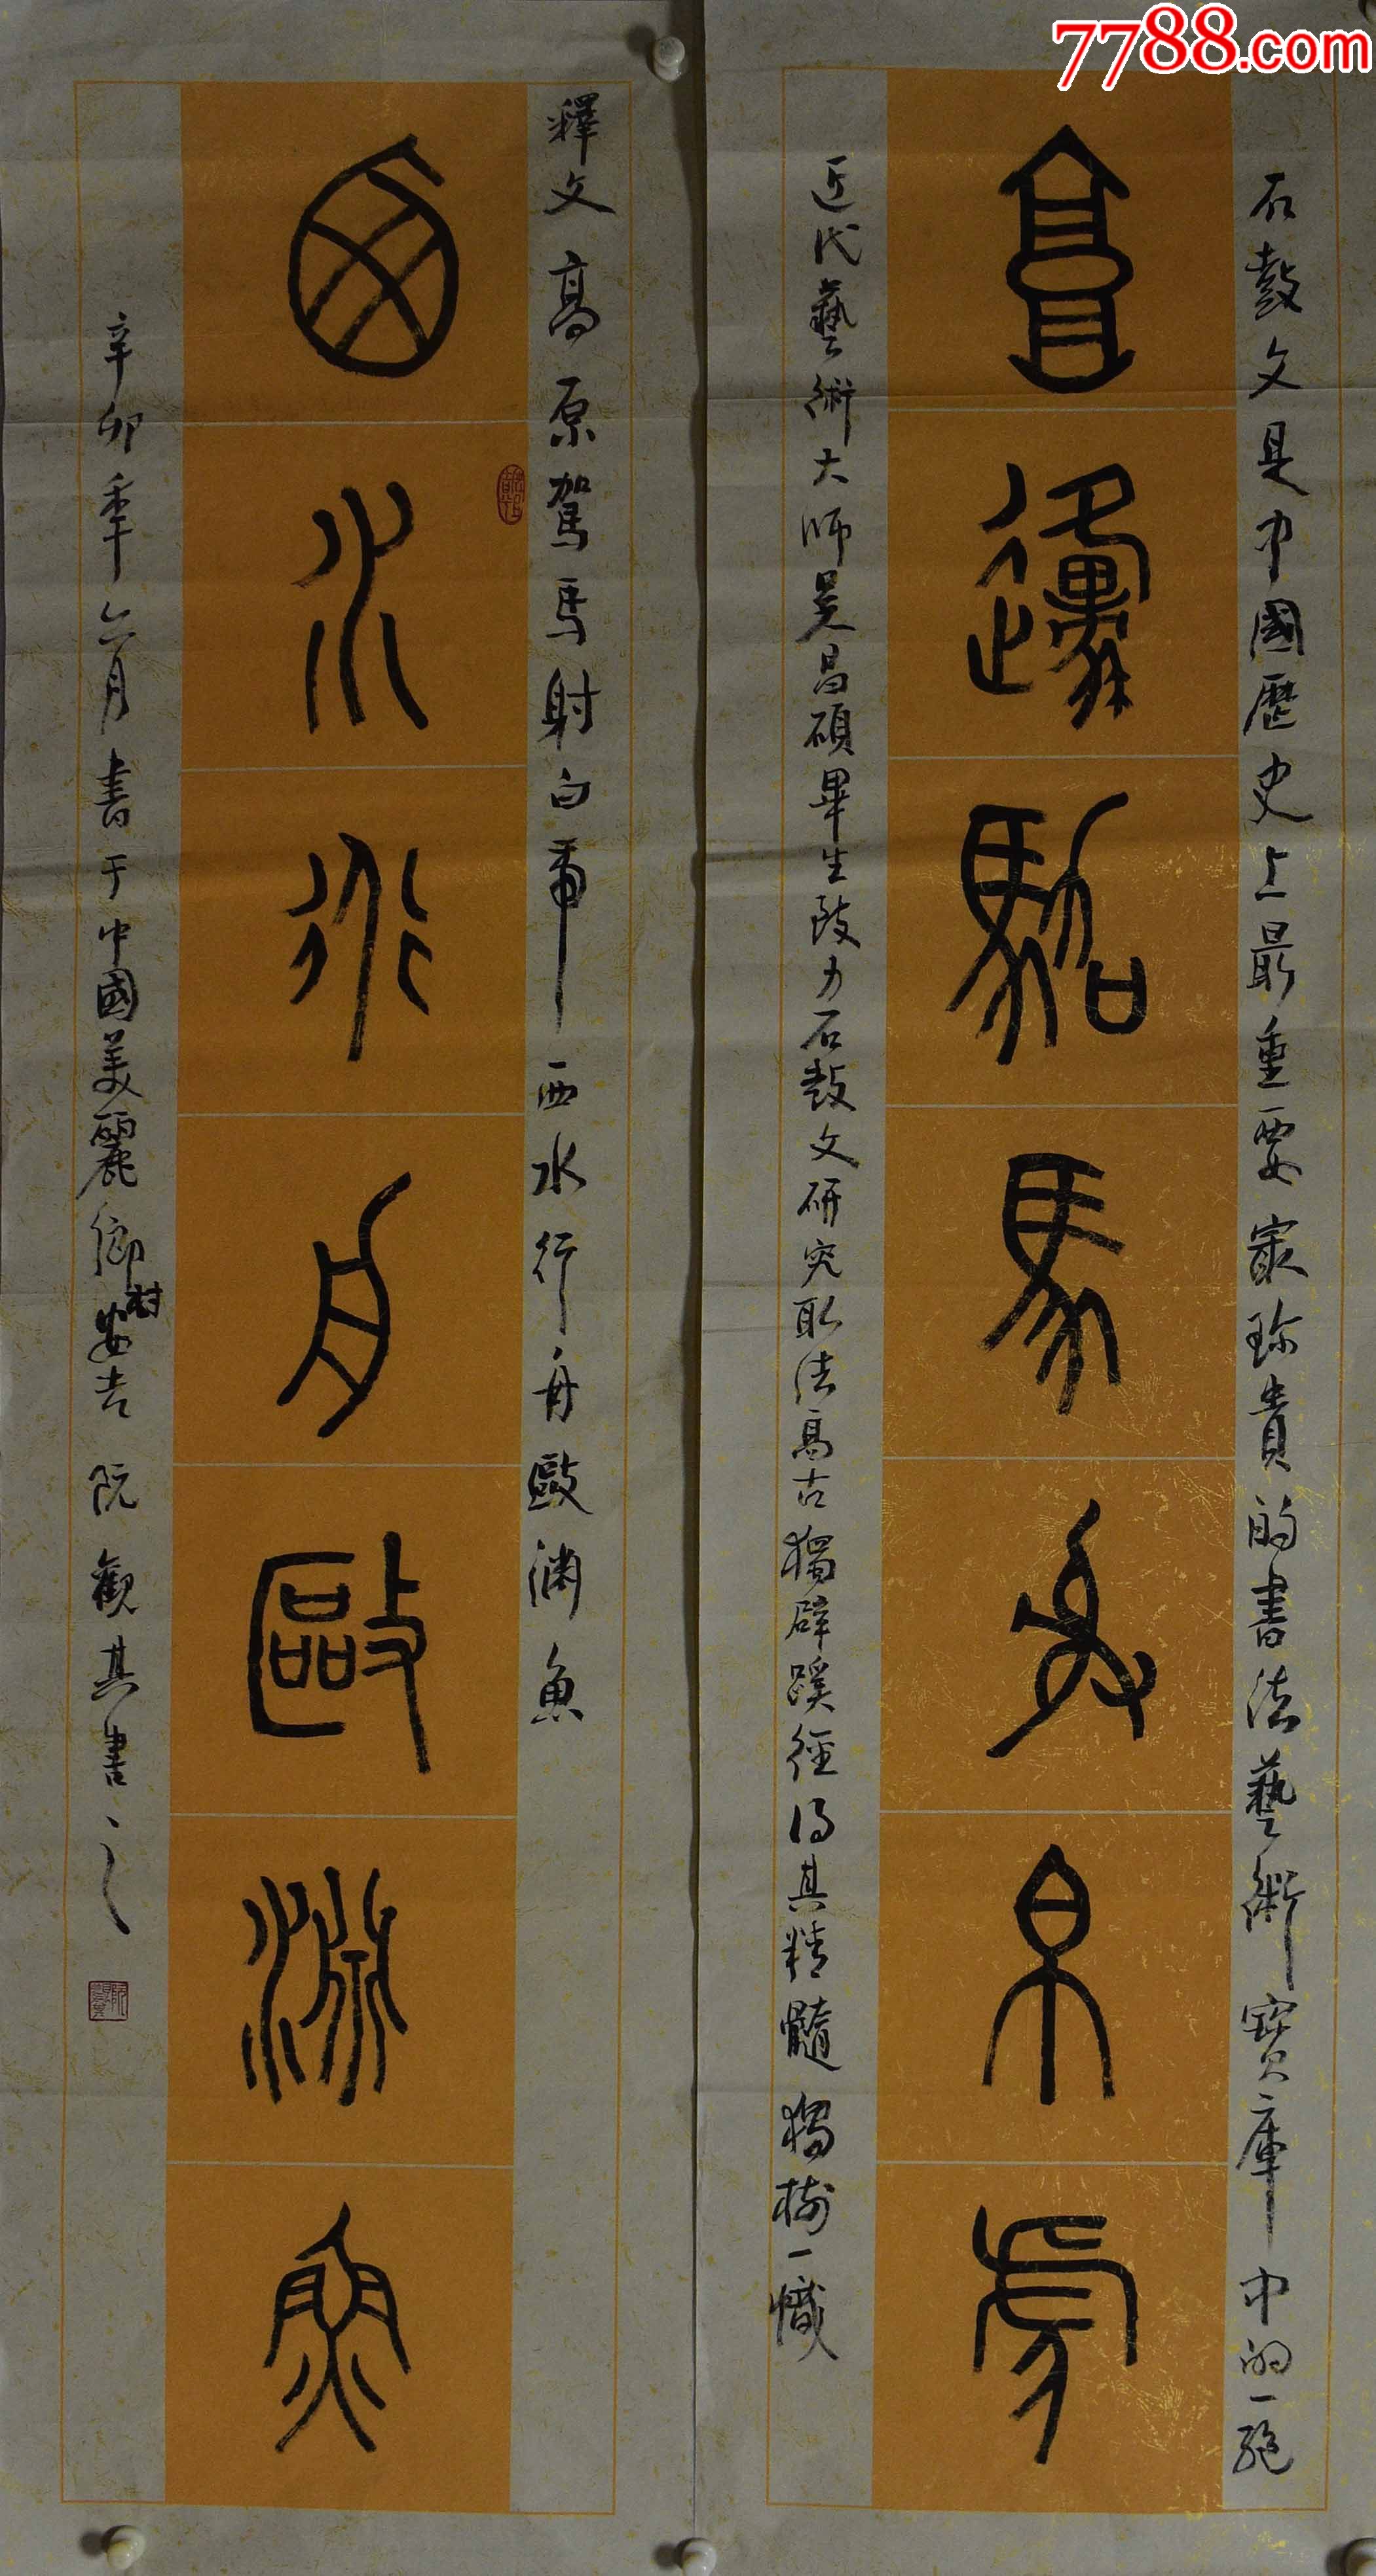 7788.com
石鼓文是中國歷史上最重要最珍貴的書法藝術寶庫中的一絕
高原駕馬射白虎
近代藝術大師吳昌碩畢生致力石鼓文研究取法高古獨辟蹊徑得其精髓獨樹一幟
釋文 高原駕馬射白虎 西水行舟毆淵魚
西水行舟毆淵魚
辛卯年六月書于中國美麗鄉村安吉 阮觀其書之